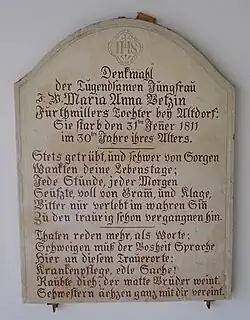 IHS
Denkmahl
der Tugendsamen Jungfrau
Maria Anna Betzin
Furthmillers Tochter bey Altdorf:
Sie starb den 31ten Jener 1811
im 30ten Jahre ihres Alters.
Stets getrübt, und schwer von Sorgen
Wankten deine Lebenstage;
Jede Stunde, jeder Morgen
Seufzte, voll von Gram, und Klage,
Bitter nur verlebt im wahren Sin
Zu den traurig schon vergangnen hin.
Thaten reden mehr, als Worte;
Schweigen muß der Bosheit Sprache
Hier an diesem Trauerorte;
Krankenpflege, edle Sache!
Raubte dich; der matte Brüder weint,
Schwestern ächzen ganz mit dir vereint.